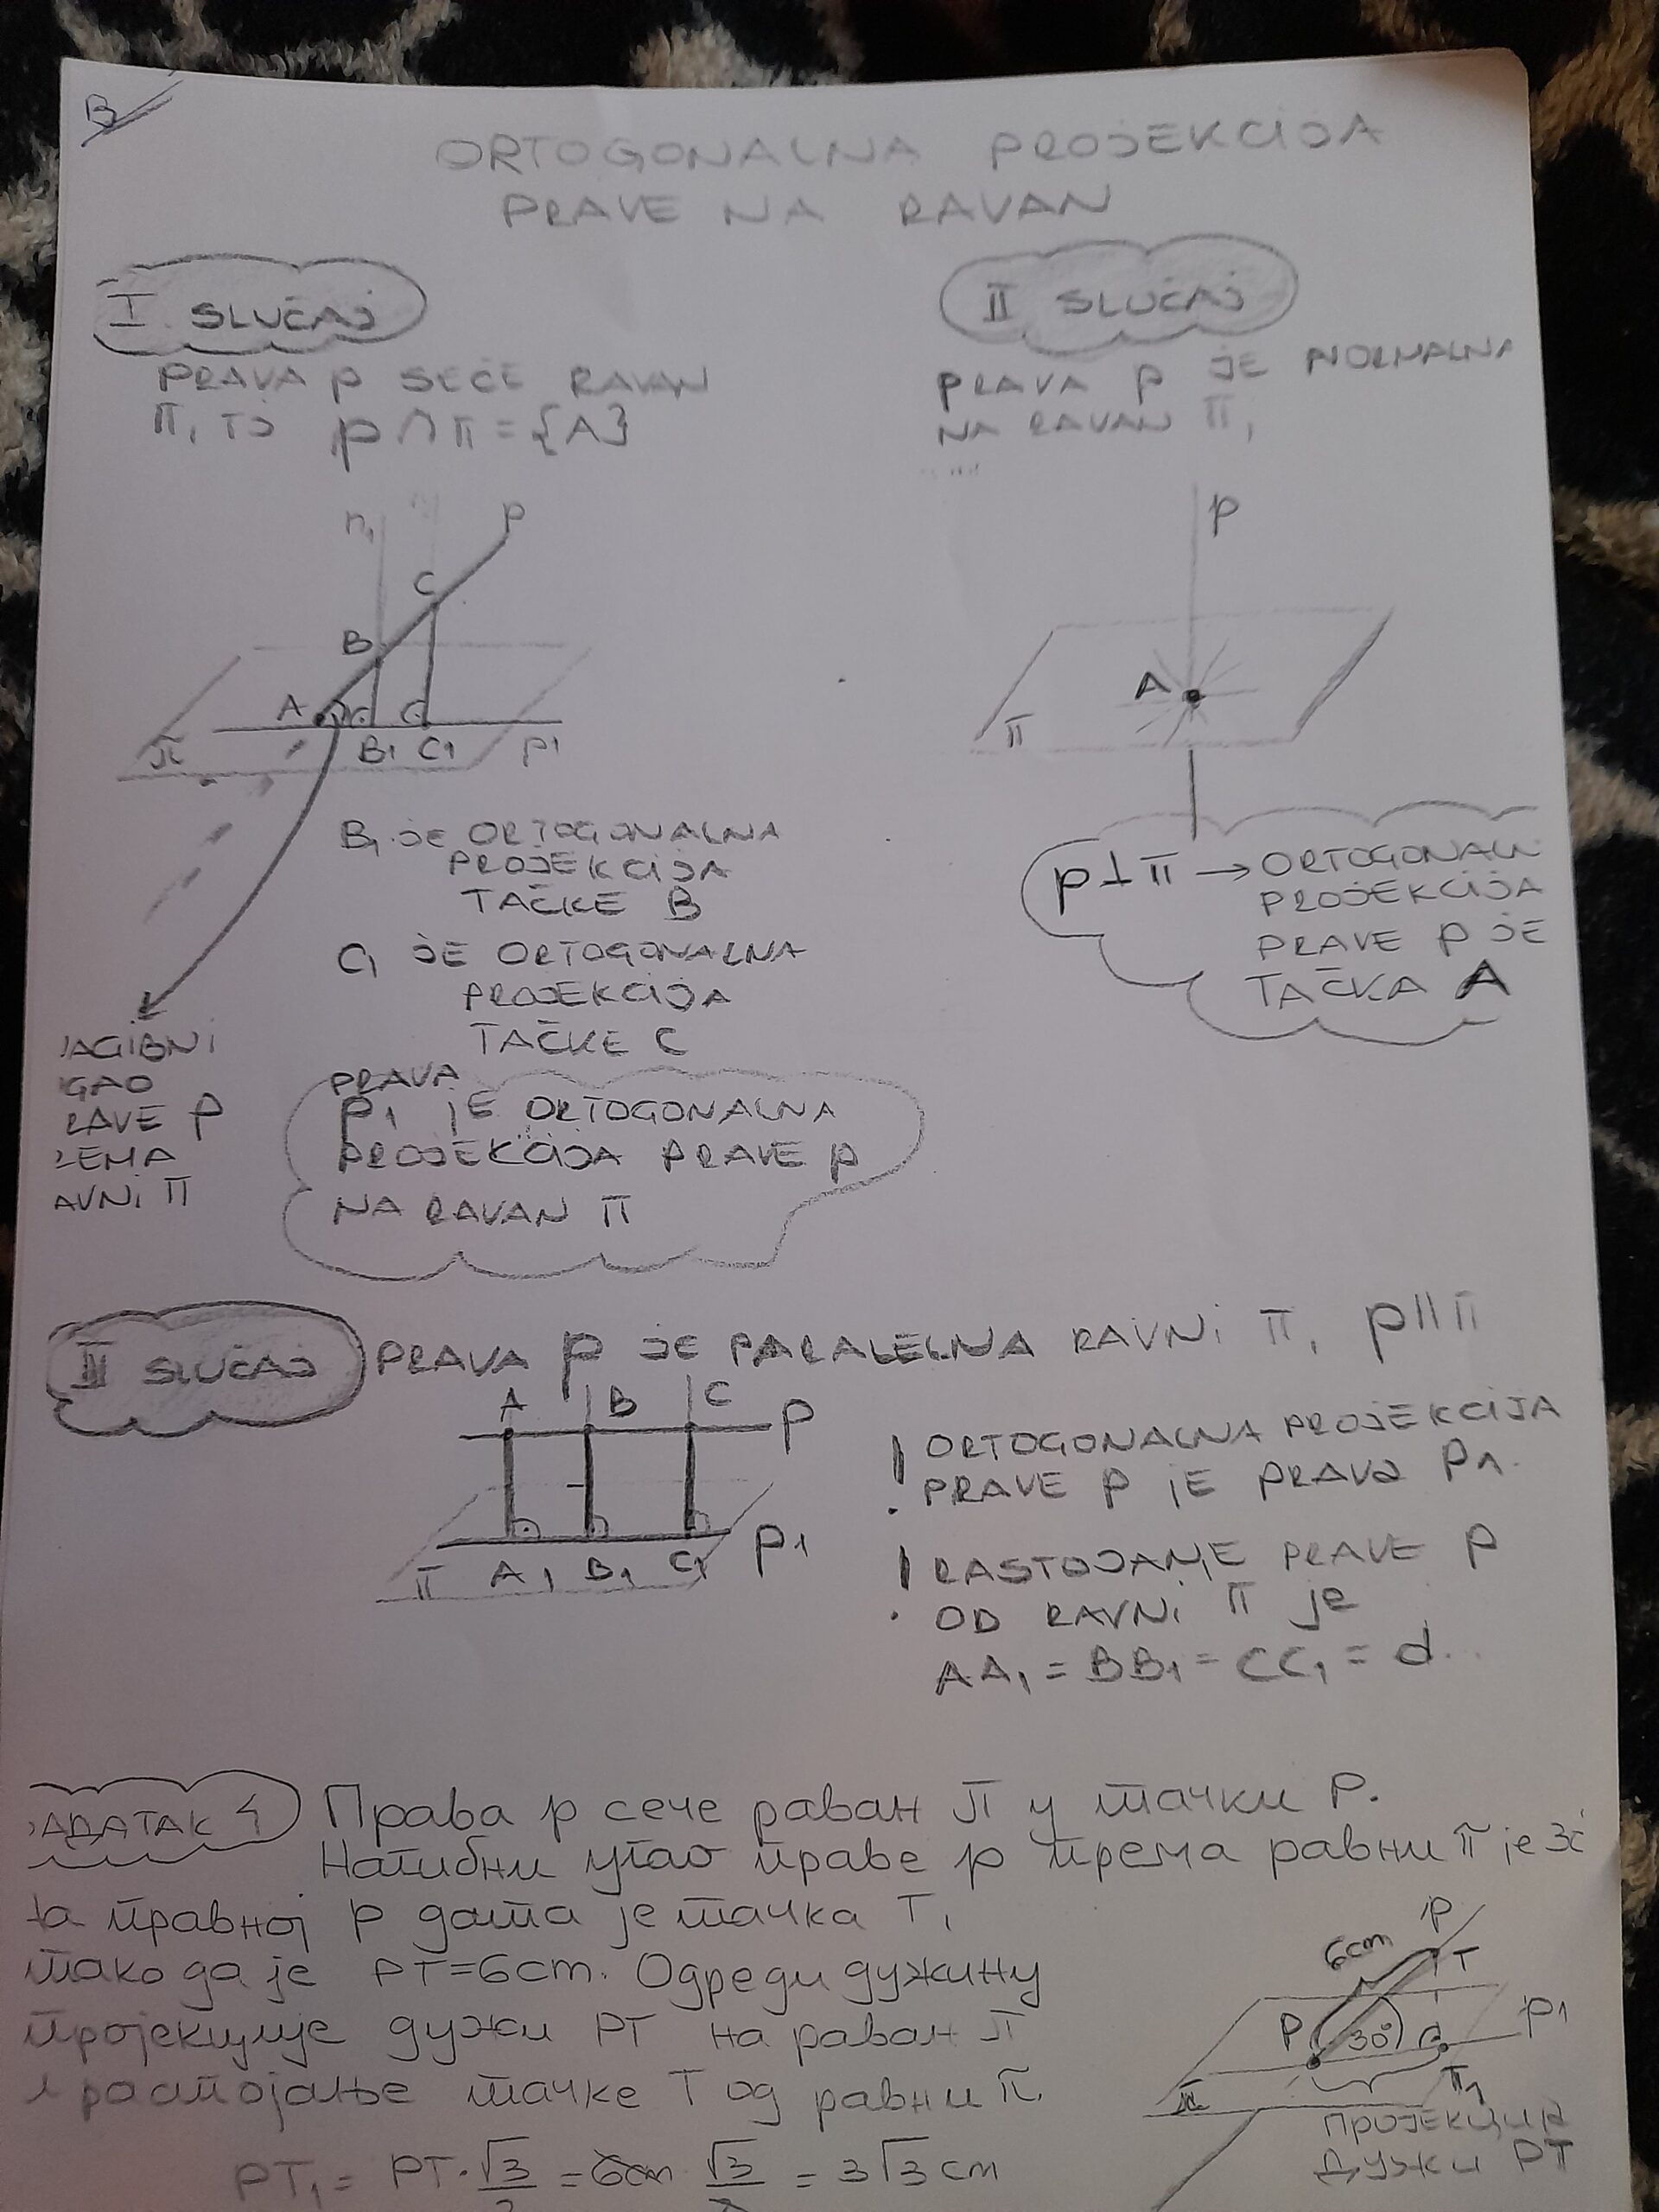 B
ORTOGONALNA PROJEKCIJA
PRAVE NA RAVAN
I SLUČAJ
PRAVA p SEČE RAVAN
π, TJ p∩π={A}
n₁
p
C
B
A
B₁ C₁
p₁
π
B₁ je ORTOGONALNA
PROJEKCIJA
TAČKE B
C₁ JE ORTOGONALNA
PROJEKCIJA
TAČKE C
AGIBNI
GAO
RAVE p
EMA
AVNI π
PRAVA
p₁ JE ORTOGONALNA
PROJEKCIJA PRAVE p
NA RAVAN π
II SLUČAJ
PRAVA p JE NORMALNA
NA RAVAN π,
p
A
π
p⊥π → ORTOGONALN
PROJEKCIJA
PRAVE p JE
TAČKA A
III SLUČAJ PRAVA p JE PARALELNA RAVNI π, p||π
A B C
p
π A₁ B₁ C₁ p₁
! ORTOGONALNA PROJEKCIJA
PRAVE p JE PRAVA p₁.
! RASTOJANJE PRAVE p
OD RAVNI π je
AA₁ = BB₁ = CC₁ = d
АДАТАК 1 Права p сече раван π у тачки P.
Нагибни угао праве p према равни π је 30
а правној p дата је тачка T,
тако да је PT=6cm. Одреди дужину
пројекције дужи PT на раван π
и растојање тачке T од равни π.
p
6cm
T
P 30° p₁
π T₁
ПРОЈЕКЦИЈА
ДУЖИ PT
PT₁ = PT·√3/2 = 6cm √3/2 = 3√3cm